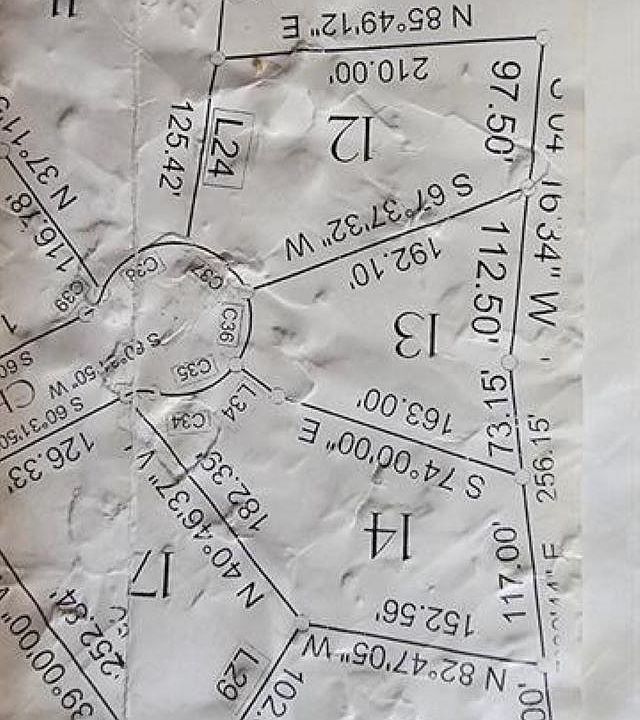 11
N 85°49'12" E
210.00'
97.50'
12
L24
125.42'
S 67°37'32" W
192.10'
16'34" W
112.50'
13
N 37°11'
116.78'
C39
C38
C37
C36
C35
C34
L34
S 60°31'50"
126.33'
163.00'
S 74°00'00" E
73.15'
256.15'
14
117.00'
N 40°46'37" W
182.39'
17
152.56'
N 82°47'05" W
L29
102.
39°00'00" W
252.84'
00'